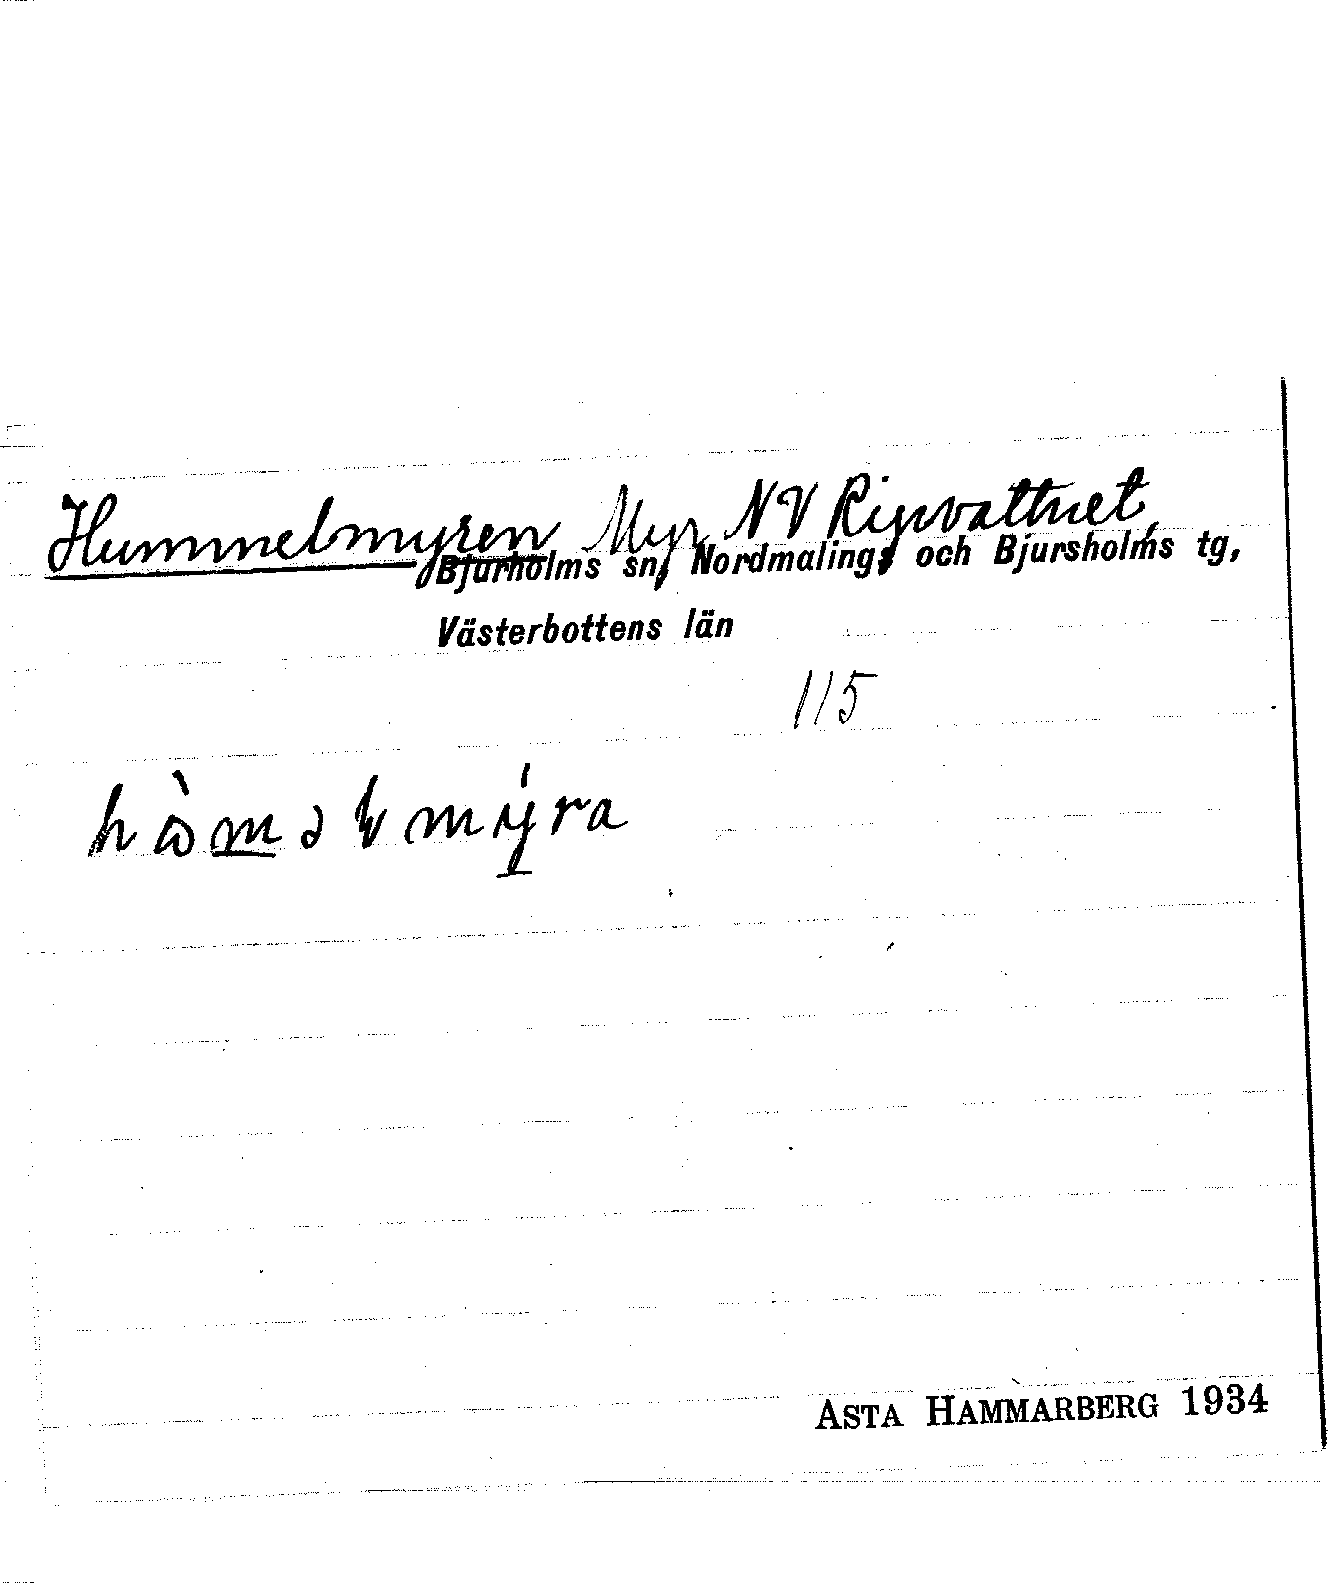 Hummelmyren Myr NV Ripvattnet
Bjurholms sn, Nordmalings och Bjursholms tg,
Västerbottens län
115
ASTA HAMMARBERG 1934